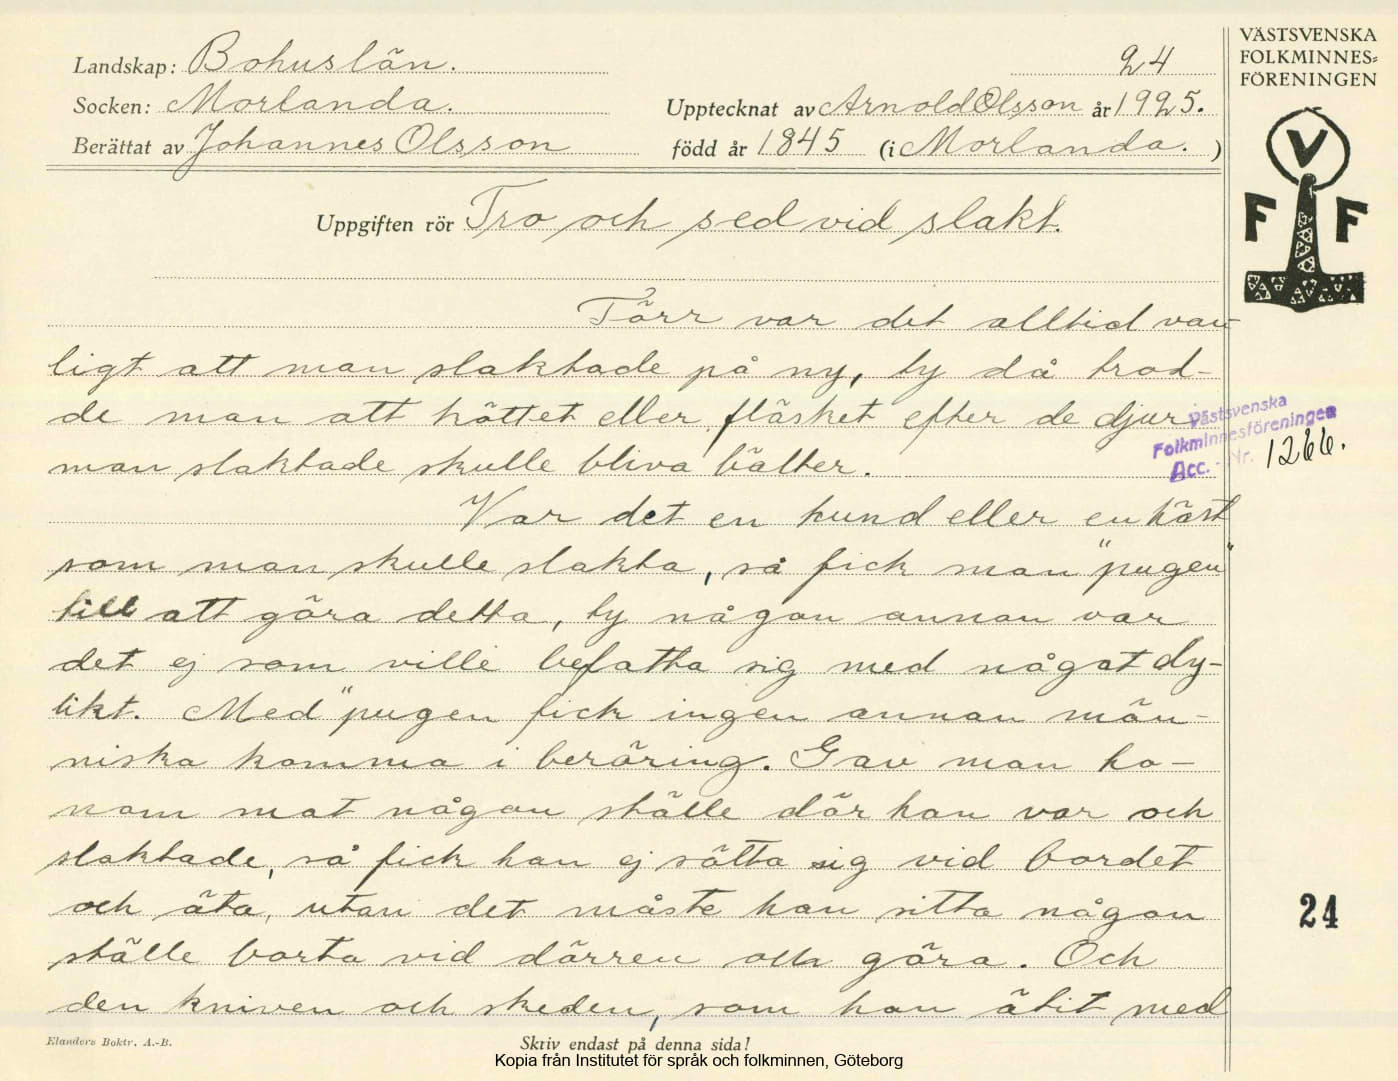 Landskap: Bohuslän.
24
Socken: Morlanda.
Upptecknat av Arnold Olsson år 1925.
Berättat av Johannes Olsson
född år 1845 (i Morlanda.)
Uppgiften rör Tro och sed vid slakt.
Förr var det alltid van-
ligt att man slaktade på ny, ty då trod-
de man att köttet eller fläsket efter de djur
man slaktade skulle bliva bätter.
Var det en hund eller en häst
som man skulle slakta, så fick man "pugen"
till att göra detta, ty någon annan var
det ej som ville befatta sig med något dy-
likt. Med "pugen fick ingen annan män-
niska komma i beröring. Gav man ho-
nom mat någon ställe där han var och
slaktade, så fick han ej sätta sig vid bordet
och äta, utan det måste han sitta någon
ställe borta vid dörren och göra. Och
den kniven och skeden, som han ätit med
Elanders Boktr. A.-B.
Skriv endast på denna sida!
Kopia från Institutet för språk och folkminnen, Göteborg
VÄSTSVENSKA
FOLKMINNES-
FÖRENINGEN
V
F F
Västsvenska
Folkminnesföreningen
Acc. - Nr. 1266.
24